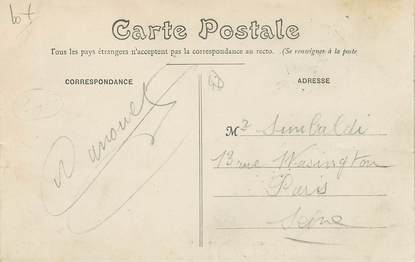 bot
Carte Postale
Tous les pays étrangers n'acceptent pas la correspondance au recto. (Se renseigner à la poste
CORRESPONDANCE
ADRESSE
Mr Simbaldi
13 rue Wasington
Paris
Seine